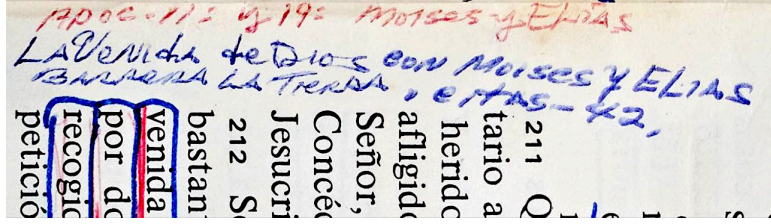 Apoc-11: y 19: MOISES y ELIAS
LA VENIDA de DIOS CON MOISES Y ELIAS
BARRERA LA TIERRA, e MAS-42.
211 Q
tario a
herido
afligido
Señor,
Concéd
Jesucri
212 Se
bastan
venida
por do
recogid
petició